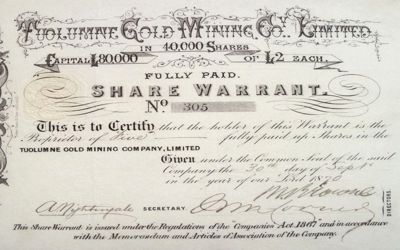 TUOLUMNE GOLD MINING COY. LIMITED
IN 40,000 SHARES
CAPITAL £80000 OF £2 EACH.
FULLY PAID.
SHARE WARRANT.
No 305
This is to Certify that the holder of this Warrant is the
Proprietor of Five fully paid up Shares in the
TUOLUMNE GOLD MINING COMPANY, LIMITED
Given under the Common Seal of the said
Company the 30th day of Sept
in the year of our Lord 1872
A Nightingale SECRETARY
DIRECTORS
This Share Warrant is issued under the Regulations of the Companies Act 1867 and in accordance
with the Memorandum and Articles of Association of the Company.